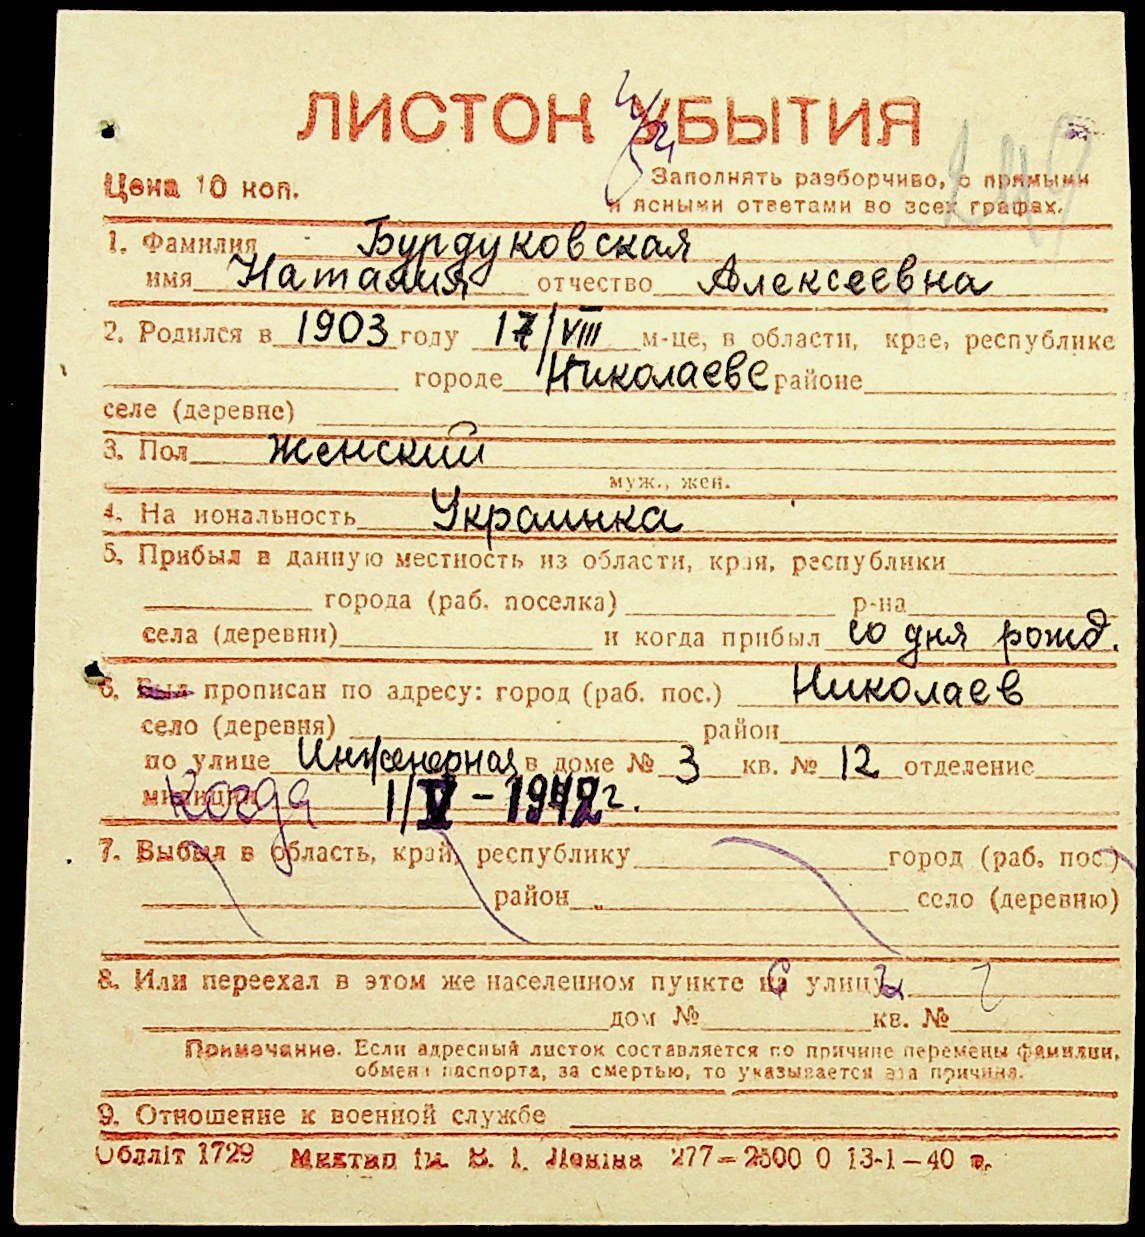 ЛИСТОК УБЫТИЯ
Цена 10 коп.
Заполнять разборчиво, с прямыми
и ясными ответами во всех графах.
1. Фамилия Бурдуковская
имя Наталия отчество Алексеевна
2. Родился в 1903 году 17/VIII м-це, в области, крае, республике
городе Николаеве районе
селе (деревне)
3. Пол Женский
муж., жен.
4. На иональность Украинка
5. Прибыл в данную местность из области, края, республики
города (раб. поселка) р-на
села (деревни) и когда прибыл со дня рожд.
6. Был прописан по адресу: город (раб. пос.) Николаев
село (деревня) район
по улице Инженерная в доме № 3 кв. № 12 отделение
милиции Когда 1/V - 1942 г.
7. Выбыл в область, край, республику город (раб. пос.)
район село (деревню)
8. Или переехал в этом же населенном пункте на улицу
дом № кв. №
Примечание. Если адресный листок составляется по причине перемены фамилии,
обмена паспорта, за смертью, то указывается эта причина.
9. Отношение к военной службе
Облліт 1729 Миктип ім. В. І. Леніна 277—2500 0 13-1—40 г.